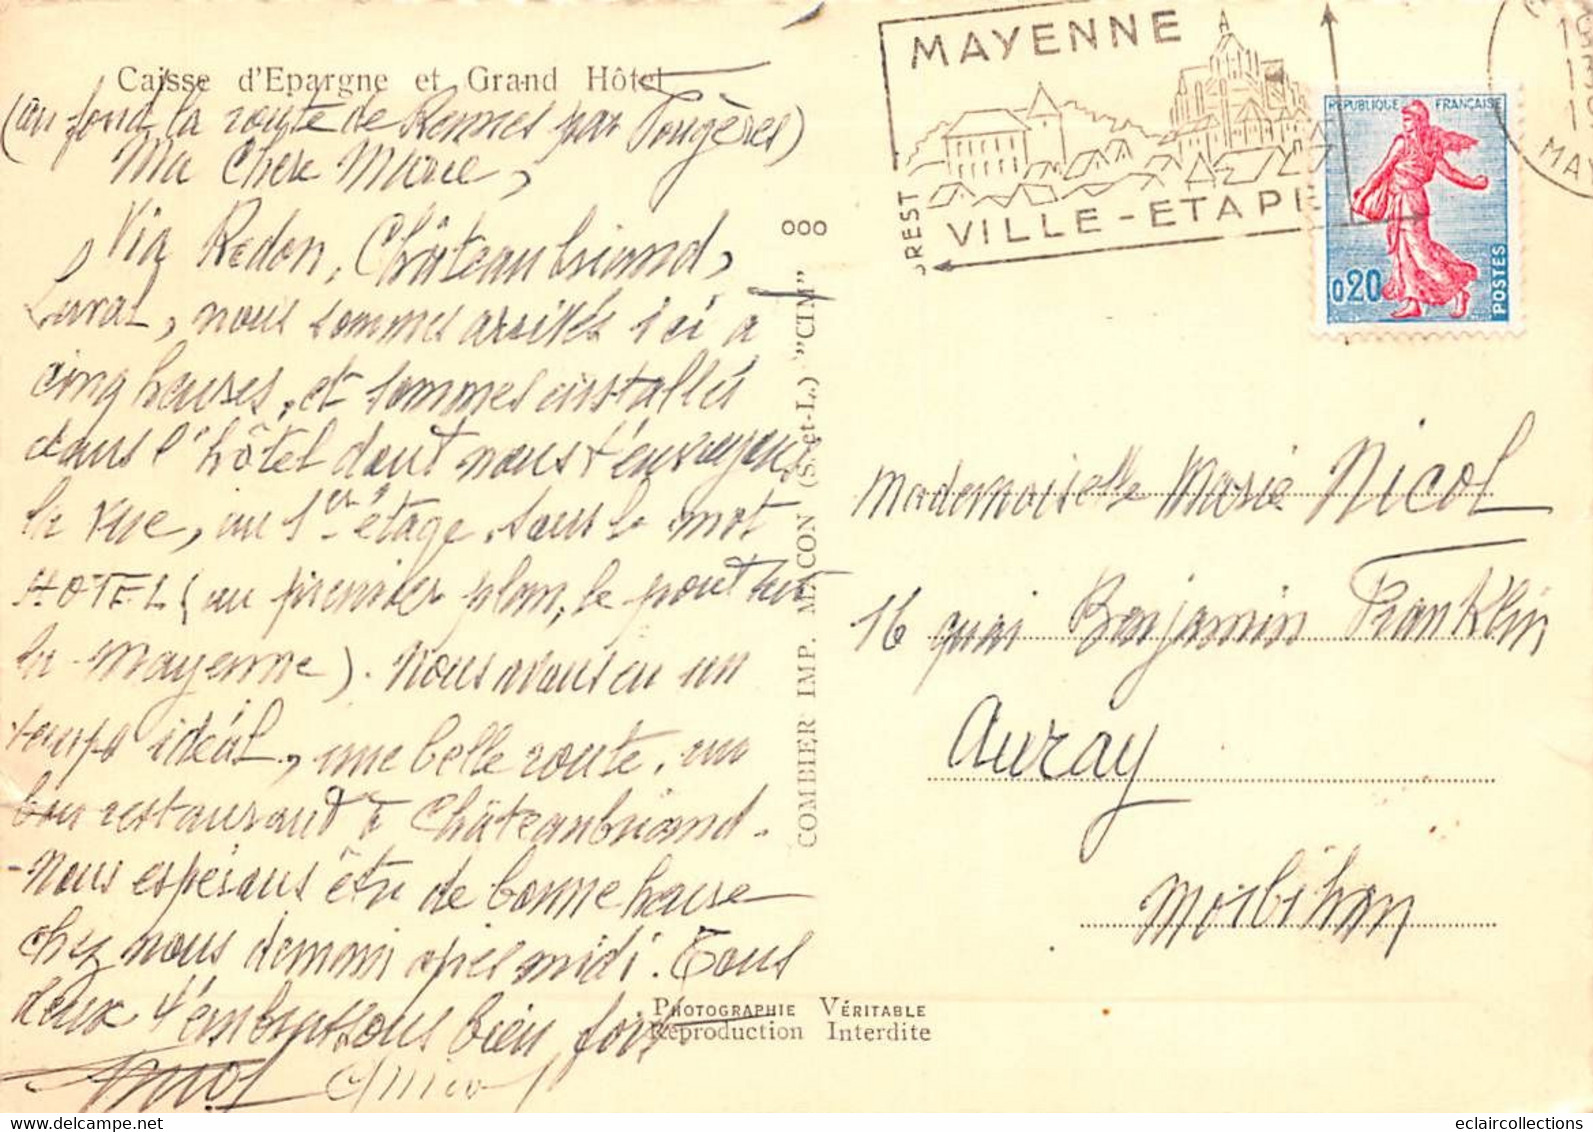 Caisse d'Epargne et Grand Hôtel
(au fond la route de Rennes par Fougères)
Ma Chère Marie,
Via Redon, Châteaubriand,
Laval, nous sommes arrivés ici à
cinq heures, et sommes installés
dans l'hôtel dont nous t'envoyons
la vue, au 1er étage, sous le mot
HOTEL (au premier plan, le pont sur
la Mayenne). Nous avons eu un
temps idéal, une belle route, un
bon restaurant à Châteaubriand.
Nous espérons être de bonne heure
chez nous demain après midi. Tous
deux t'embrassons bien fort
Nicol
Nicol
COMBIER IMP. MACON (S.-et-L.) "CIM"
PHOTOGRAPHIE VÉRITABLE
Reproduction Interdite
MAYENNE
VILLE-ETAPE
REST
MAY
REPUBLIQUE FRANÇAISE
0,20
POSTES
Mademoiselle Marie Nicol
16 quai Benjamin Franklin
Auray
Morbihan
eclaircollections